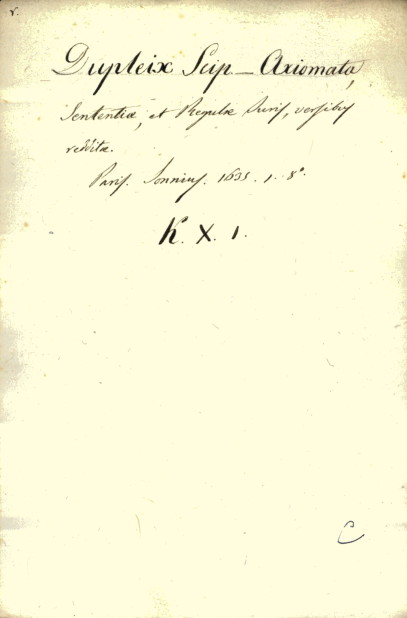 v.
Dupleix Scip_ Axiomata,
Sententiæ, et Regulæ Iuris, versibus
redditæ.
Paris. Sonnius. 1635. 1. 8°.
K. X. 1.
C